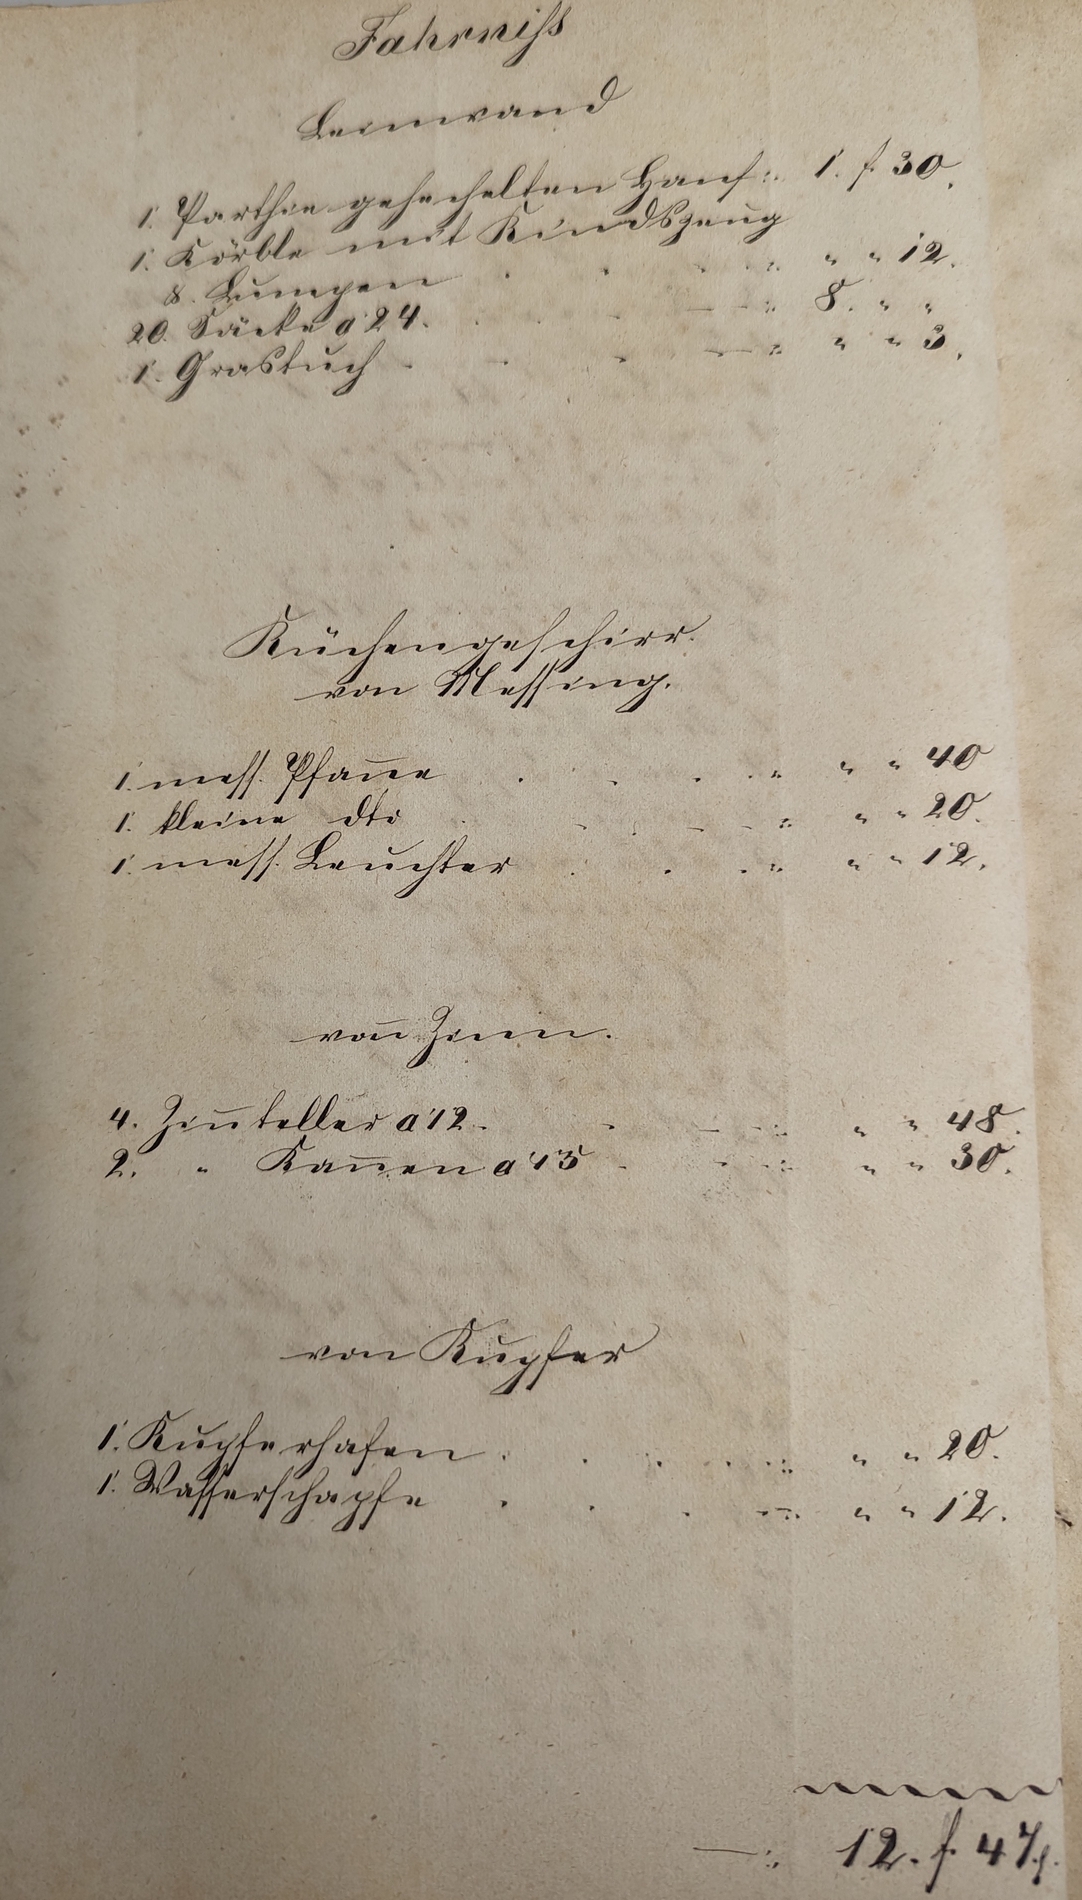 Fahrniss
Leinwand
1. Parthie gehechelten Hanf :: 1. f. 30.
1. Körble mit Kindszeug
&. Lumpen . . . . :: " " 12.
20. Säcke a 24. . . . — :: 8. " "
1. Grastuch . . . — :: " " 3.
Küchengeschirr.
von Messing.
1. mess. Pfan̄e . . . . " " " 40
1. kleine dto . . . — :: " " 20.
1. mess. Leuchter . . . . " " " 12.
von̄ Zinn.
4. Zin̄teller a 12. . — :: " " 48.
2. " Kan̄en a 15 . — :: " " 30.
von Kupfer
1. Kupferhafen . . . . . :: " " 20.
1. Wasserschapfe . . . — :: " " 12.
— :: 12. f. 47.